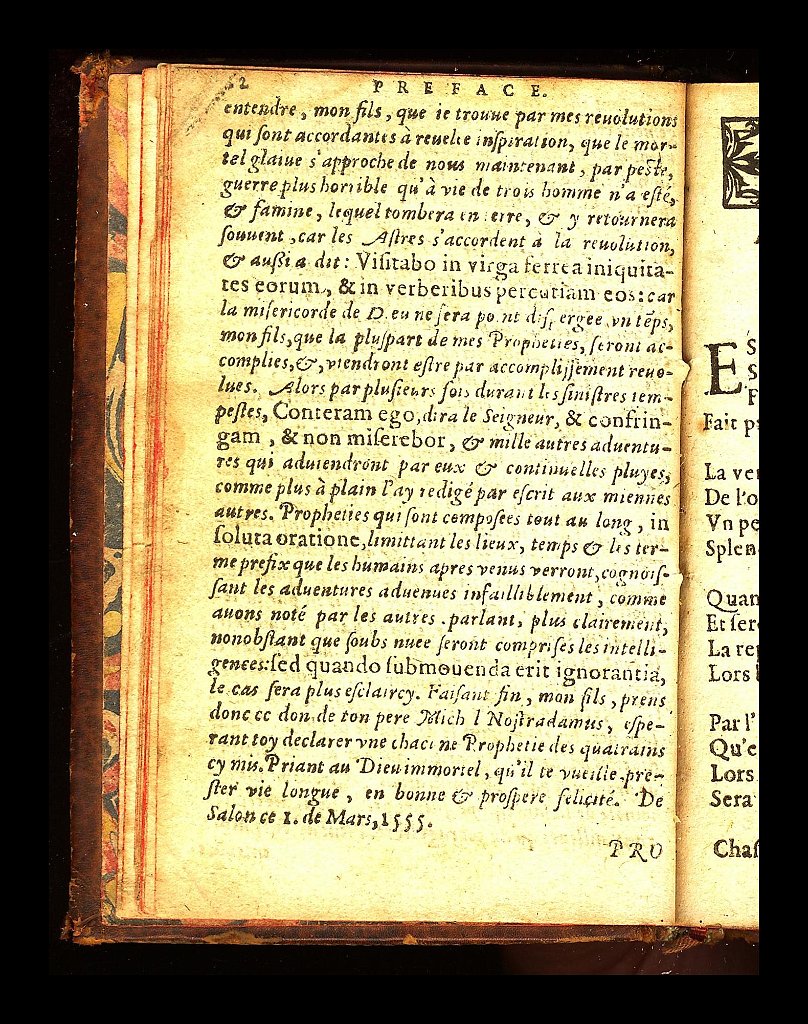 2
PREFACE.
entendre, mon fils, que ie trouue par mes reuolutions
qui ſont accordantes à reuelee inſpiration, que le mor-
tel glaiue s'approche de nous maintenant, par peſte,
guerre plus horrible qu'à vie de trois homme n'a eſté,
& famine, lequel tombera en terre, & y retournera
ſouuent, car les Aſtres s'accordent à la reuolution,
& außi a dit: Viſitabo in virga ferrea iniquita-
tes eorum, & in verberibus percutiam eos: car
la miſericorde de Dieu ne ſera point diſpergee vn tẽps,
mon fils, que la pluſpart de mes Propheties, ſeront ac-
complies, &, viendront eſtre par accompliſſement reuo-
lues. Alors par pluſieurs fois durant les ſiniſtres tem-
peſtes, Conteram ego, dira le Seigneur, & confrin-
gam, & non miſerebor, & mille autres aduentu-
res qui aduiendront par eux & continuelles pluyes,
comme plus à plain l'ay redigé par eſcrit aux miennes
autres. Propheties qui ſont compoſees tout au long, in
ſoluta oratione, limittant les lieux, temps & les ter-
me prefix que les humains apres venus verront, cognoiſ-
ſant les aduentures aduenues infailliblement, comme
auons noté par les autres. parlant, plus clairement,
nonobſtant que ſoubs nuee ſeront compriſes les intelli-
gences: ſed quando ſubmouenda erit ignorantia,
le cas ſera plus eſclaircy. Faiſant fin, mon fils, prens
donc ce don de ton pere Mich l Noſtradamus, eſpe-
rant toy declarer vne chacune Prophetie des quatrains
cy mis. Priant au Dieu immortel, qu'il te vueille pre-
ſter vie longue, en bonne & proſpere felicité. De
Salon ce 1. de Mars, 1555.
PRO
E S
S
F
Fait p
La ve
De l'o
Vn pe
Splen
Quan
Et ſer
La re
Lors
Par l'
Qu'e
Lors
Sera
Chaſ